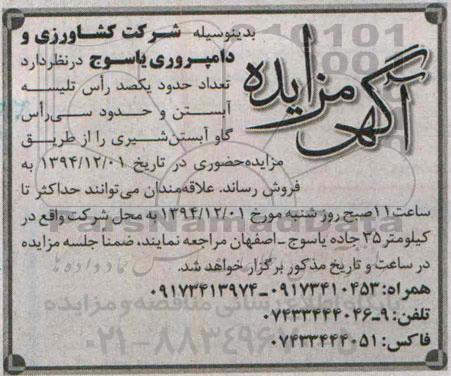 آگهی مزایده
بدینوسیله شرکت کشاورزی و
دامپروری یاسوج درنظردارد
تعداد حدود یکصد رأس تلیسه
آبستن و حدود سی‌رأس
گاو آبستن‌شیری را از طریق
مزایده‌حضوری در تاریخ ۱۳۹۴/۱۲/۰۱ به
فروش رساند. علاقه‌مندان می‌توانند حداکثر تا
ساعت۱۱صبح روز شنبه مورخ ۱۳۹۴/۱۲/۰۱ به محل شرکت واقع در
کیلومتر ۳۵ جاده یاسوج ـ اصفهان مراجعه نمایند، ضمنا جلسه مزایده
در ساعت و تاریخ مذکور برگزار خواهد شد.
همراه: ۰۹۱۷۳۴۱۰۴۵۳ ـ ۰۹۱۷۳۴۱۳۹۷۴
تلفن: ۹ـ۰۷۴۳۳۴۴۴۰۴۶
فاکس: ۰۷۴۳۳۴۴۴۰۵۱
ParsNamadData
پایگاه اطلاع رسانی مناقصه و مزایده